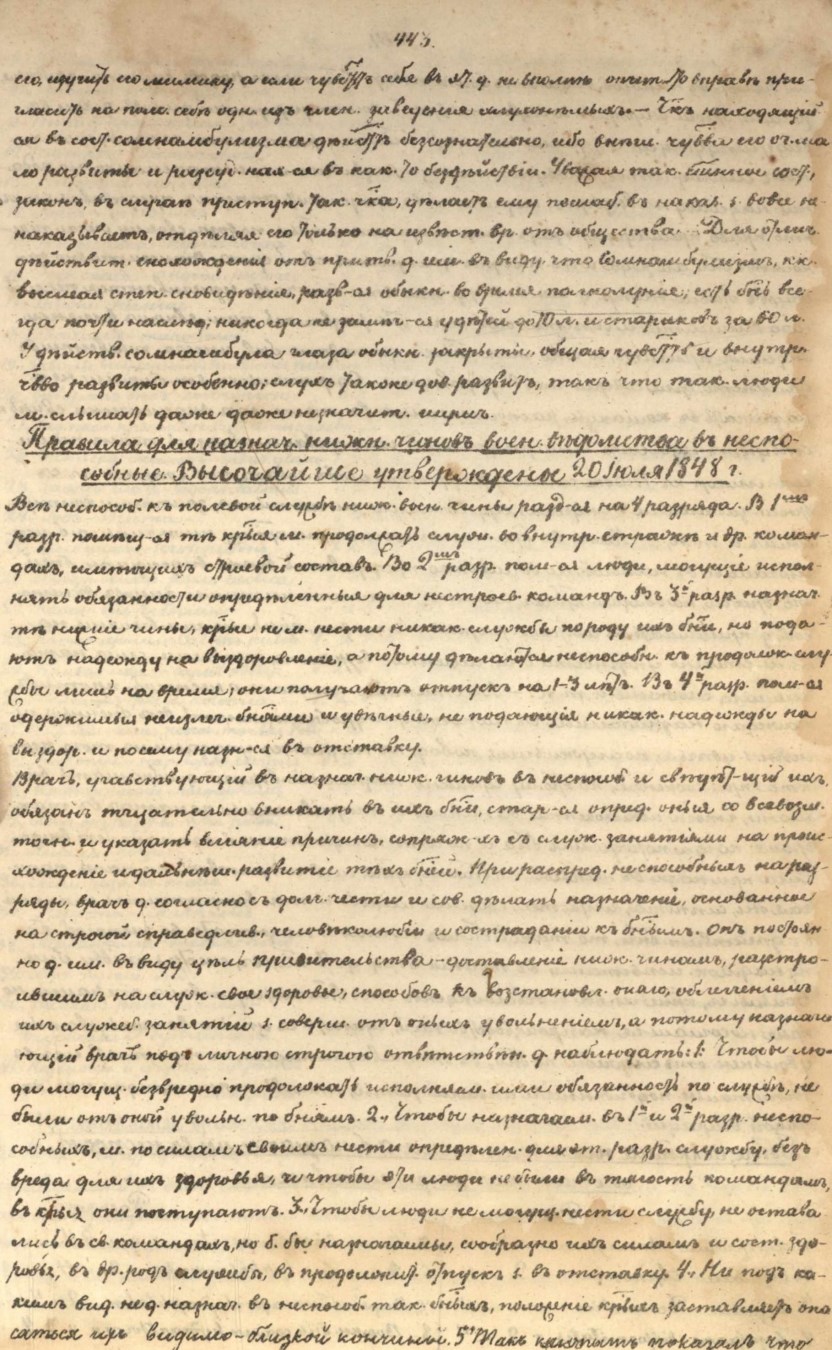 443.
его, изучить его мимику, а если чувств. себя въ эт. д. не вполнѣ опыт. то вправѣ при-
гласить на пом. себѣ одн. изъ член. заведенія глухонѣмыхъ. — Чкъ находящій
ся въ сост. сомнамбулизма дѣйств. безсознательно, ибо внѣш. чувства его оч. ма
ло развиты и разсуд. нах-ся въ как. то бездѣйствіи. Уважая так. сост.,
законъ, въ случаѣ приступ. так. чка, дѣлаетъ ему послаб. въ наказ. s. вовсе не
наказываетъ, отдѣляя его только на извѣст. вр. отъ общества. Для отлич.
дѣйствит. снохожденія отъ притв. д. имѣ. въ виду что сомнамбулизмъ, кк.
высшая степ. сновидѣнія, разв-ая обыкн. во время полнолунія, есть бнь все
гда почти наслѣд; никогда не замѣч-ся у дѣтей до 10 л. и стариковъ за 60 л.
У дѣйств. сомнамбула глаза обыкн. закрыты, общая чувств. и внутр.
чвво развиты особенно; слухъ также дов. развитъ, такъ что так. люди
м. слышать даже даже незначит. шумъ.
Правила для назнач. нижн. чиновъ воен. вѣдомства въ неспо-
собные. Высочайше утверждены 20 Іюля 1848 г.
Всѣ неспособ. къ полевой службѣ ниж. воен. чины разд-ся на 4 разряда. В 1мъ
разр. помѣщ-ся тѣ крые м. продолжать служ. во внутр. стражѣ и др. коман-
дахъ, имѣющихъ строевой составъ. Во 2мъ разр. пом-ся люди, могущіе испол-
нять обязанности опредѣленныя для нестроев. командъ. Въ 3й разр. назнач.
тѣ нижніе чины, крые не м. нести никак. службы по роду ихъ бни, но пода-
ютъ надежду на выздоровленіе, а потому дѣлаются неспособн. къ продолж. слу
жбы лишь на время; они получаютъ отпускъ на 1-3 лѣтъ. Въ 4й разр. пом-ся
одержимые неизлеч. бнями и увѣчные, не подающія никак. надежды на
выздор. и посему назн-ся въ отставку.
Врачъ, участвующій въ назнач. ниж. чиновъ въ неспособ. и свидѣт-щій ихъ,
обязанъ тщательно вникать въ ихъ бни, стар-ся опред. оныя со всевозм.
точн. и указать вліяніе причинъ, сопряж-хъ съ служ. занятіями на проис-
хожденіе и дальнѣйш. развитіе тѣхъ бней. При распред. неспособныхъ на раз-
ряды, врачъ д. согласно съ долг. чести и сов. дѣлать назначеніе, основанное
на строгой справедлив., человѣколюбіи и состраданіи къ бнымъ. Онъ постоян-
но д. им. въ виду цѣль правительства — доставленіе ниж. чинамъ, разстро-
ившимъ на служ. свое здоровье, способовъ къ возстановл. онаго, облегченіемъ
ихъ служеб. занятій s. соверш. отъ оныхъ увольненіемъ, а потому назнача
ющій врачъ подъ личною строгою отвѣтствен. д. наблюдать: 1. Чтобы лю-
ди могущ. безвредно продолжать исполняем. ими обязанность по службѣ, не
были отъ оной увольн. по бнямъ. 2., Чтобы назначаем. въ 1й и 2й разр. неспо-
собныхъ, м. по силамъ своимъ нести опредѣлен. для эт. разр. службу, безъ
вреда для ихъ здоровья, и чтобы эти люди не были въ тягость командамъ,
въ крыя они поступаютъ. 3., Чтобы люди не могущ. нести службу, не остава
лись въ св. командахъ, но б. бы назначаемы, сообразно ихъ силамъ и сост. здо-
ровья, въ др. родъ службы, въ продолжит. отпускъ s. въ отставку. 4., Ни подъ ка-
кимъ вид. не д. назнач. въ неспособ. так. бныхъ, положеніе крыхъ заставляетъ опа
саться ихъ видимо-близкой кончины. 5., Такъ показалъ что